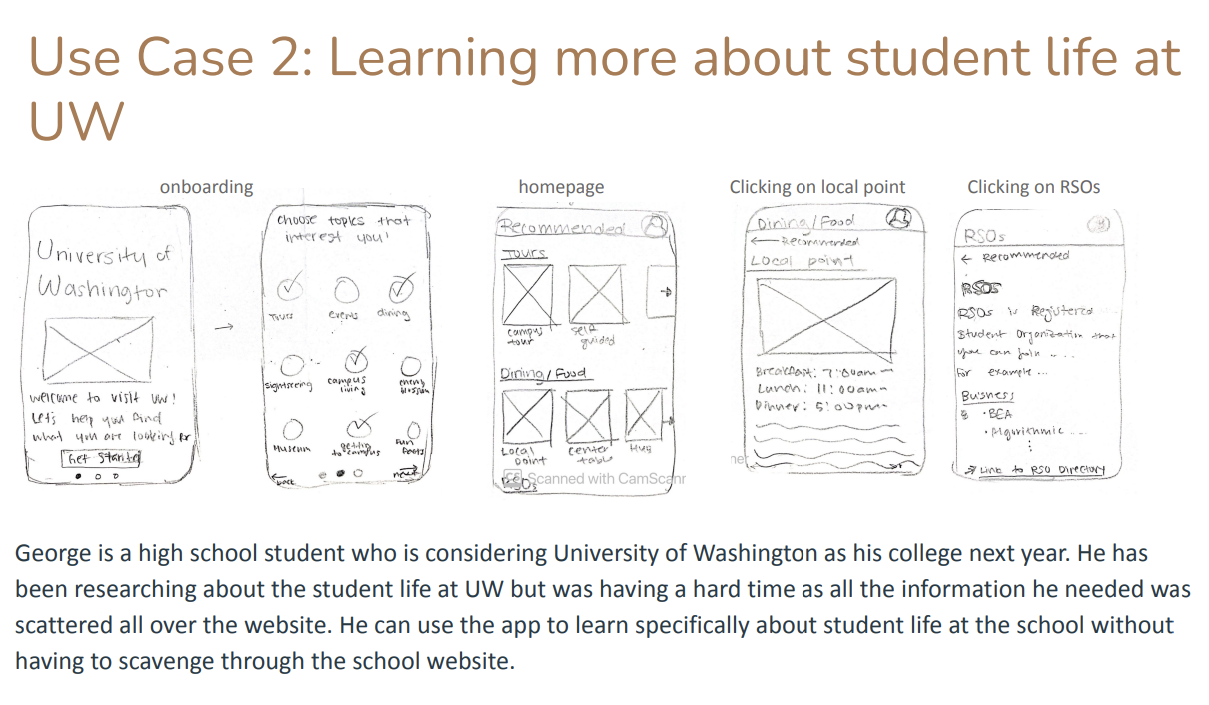 Use Case 2: Learning more about student life at
UW
onboarding
homepage
Clicking on local point
Clicking on RSOs
University of
Washington
welcome to visit UW!
Let's help you find
what you are looking for
Get Starte
choose topics that
interest you!
Tours
events
dining
sightseeing
campus
living
cherry
blossom
Museum
getting
to campus
Fun
facts
back
next
Recommended
Tours
campus
tour
self
guided
Dining/Food
Local
point
center
table
Hub
RSOs
Scanned with CamScanr
Dining/Food
← Recommended
Local point
Breakfast: 7:00am-
Lunch: 11:00am-
Dinner: 5:00pm-
RSOs
← Recommended
RSOs
RSOs is Registered
Student Organization that
you can join ....
For example ...
Busness
• BEA
• Algorithmic ....
Link to RSO Directory
George is a high school student who is considering University of Washington as his college next year. He has
been researching about the student life at UW but was having a hard time as all the information he needed was
scattered all over the website. He can use the app to learn specifically about student life at the school without
having to scavenge through the school website.